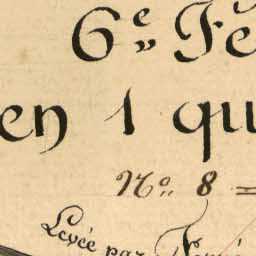 6e Fe
en 1 qu
No. 8 =
Levée par